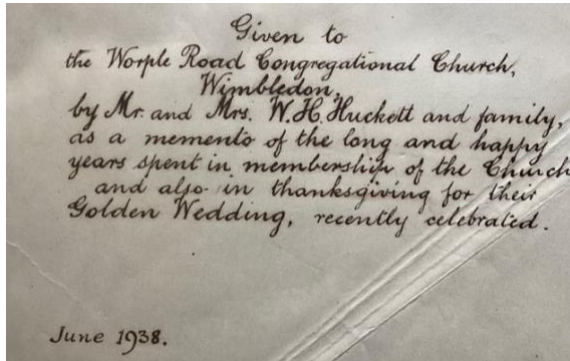 Given to
the Worple Road Congregational Church,
Wimbledon,
by Mr. and Mrs. W. H. Huckett and family,
as a memento of the long and happy
years spent in membership of the Church
and also in thanksgiving for their
Golden Wedding, recently celebrated.
June 1938.